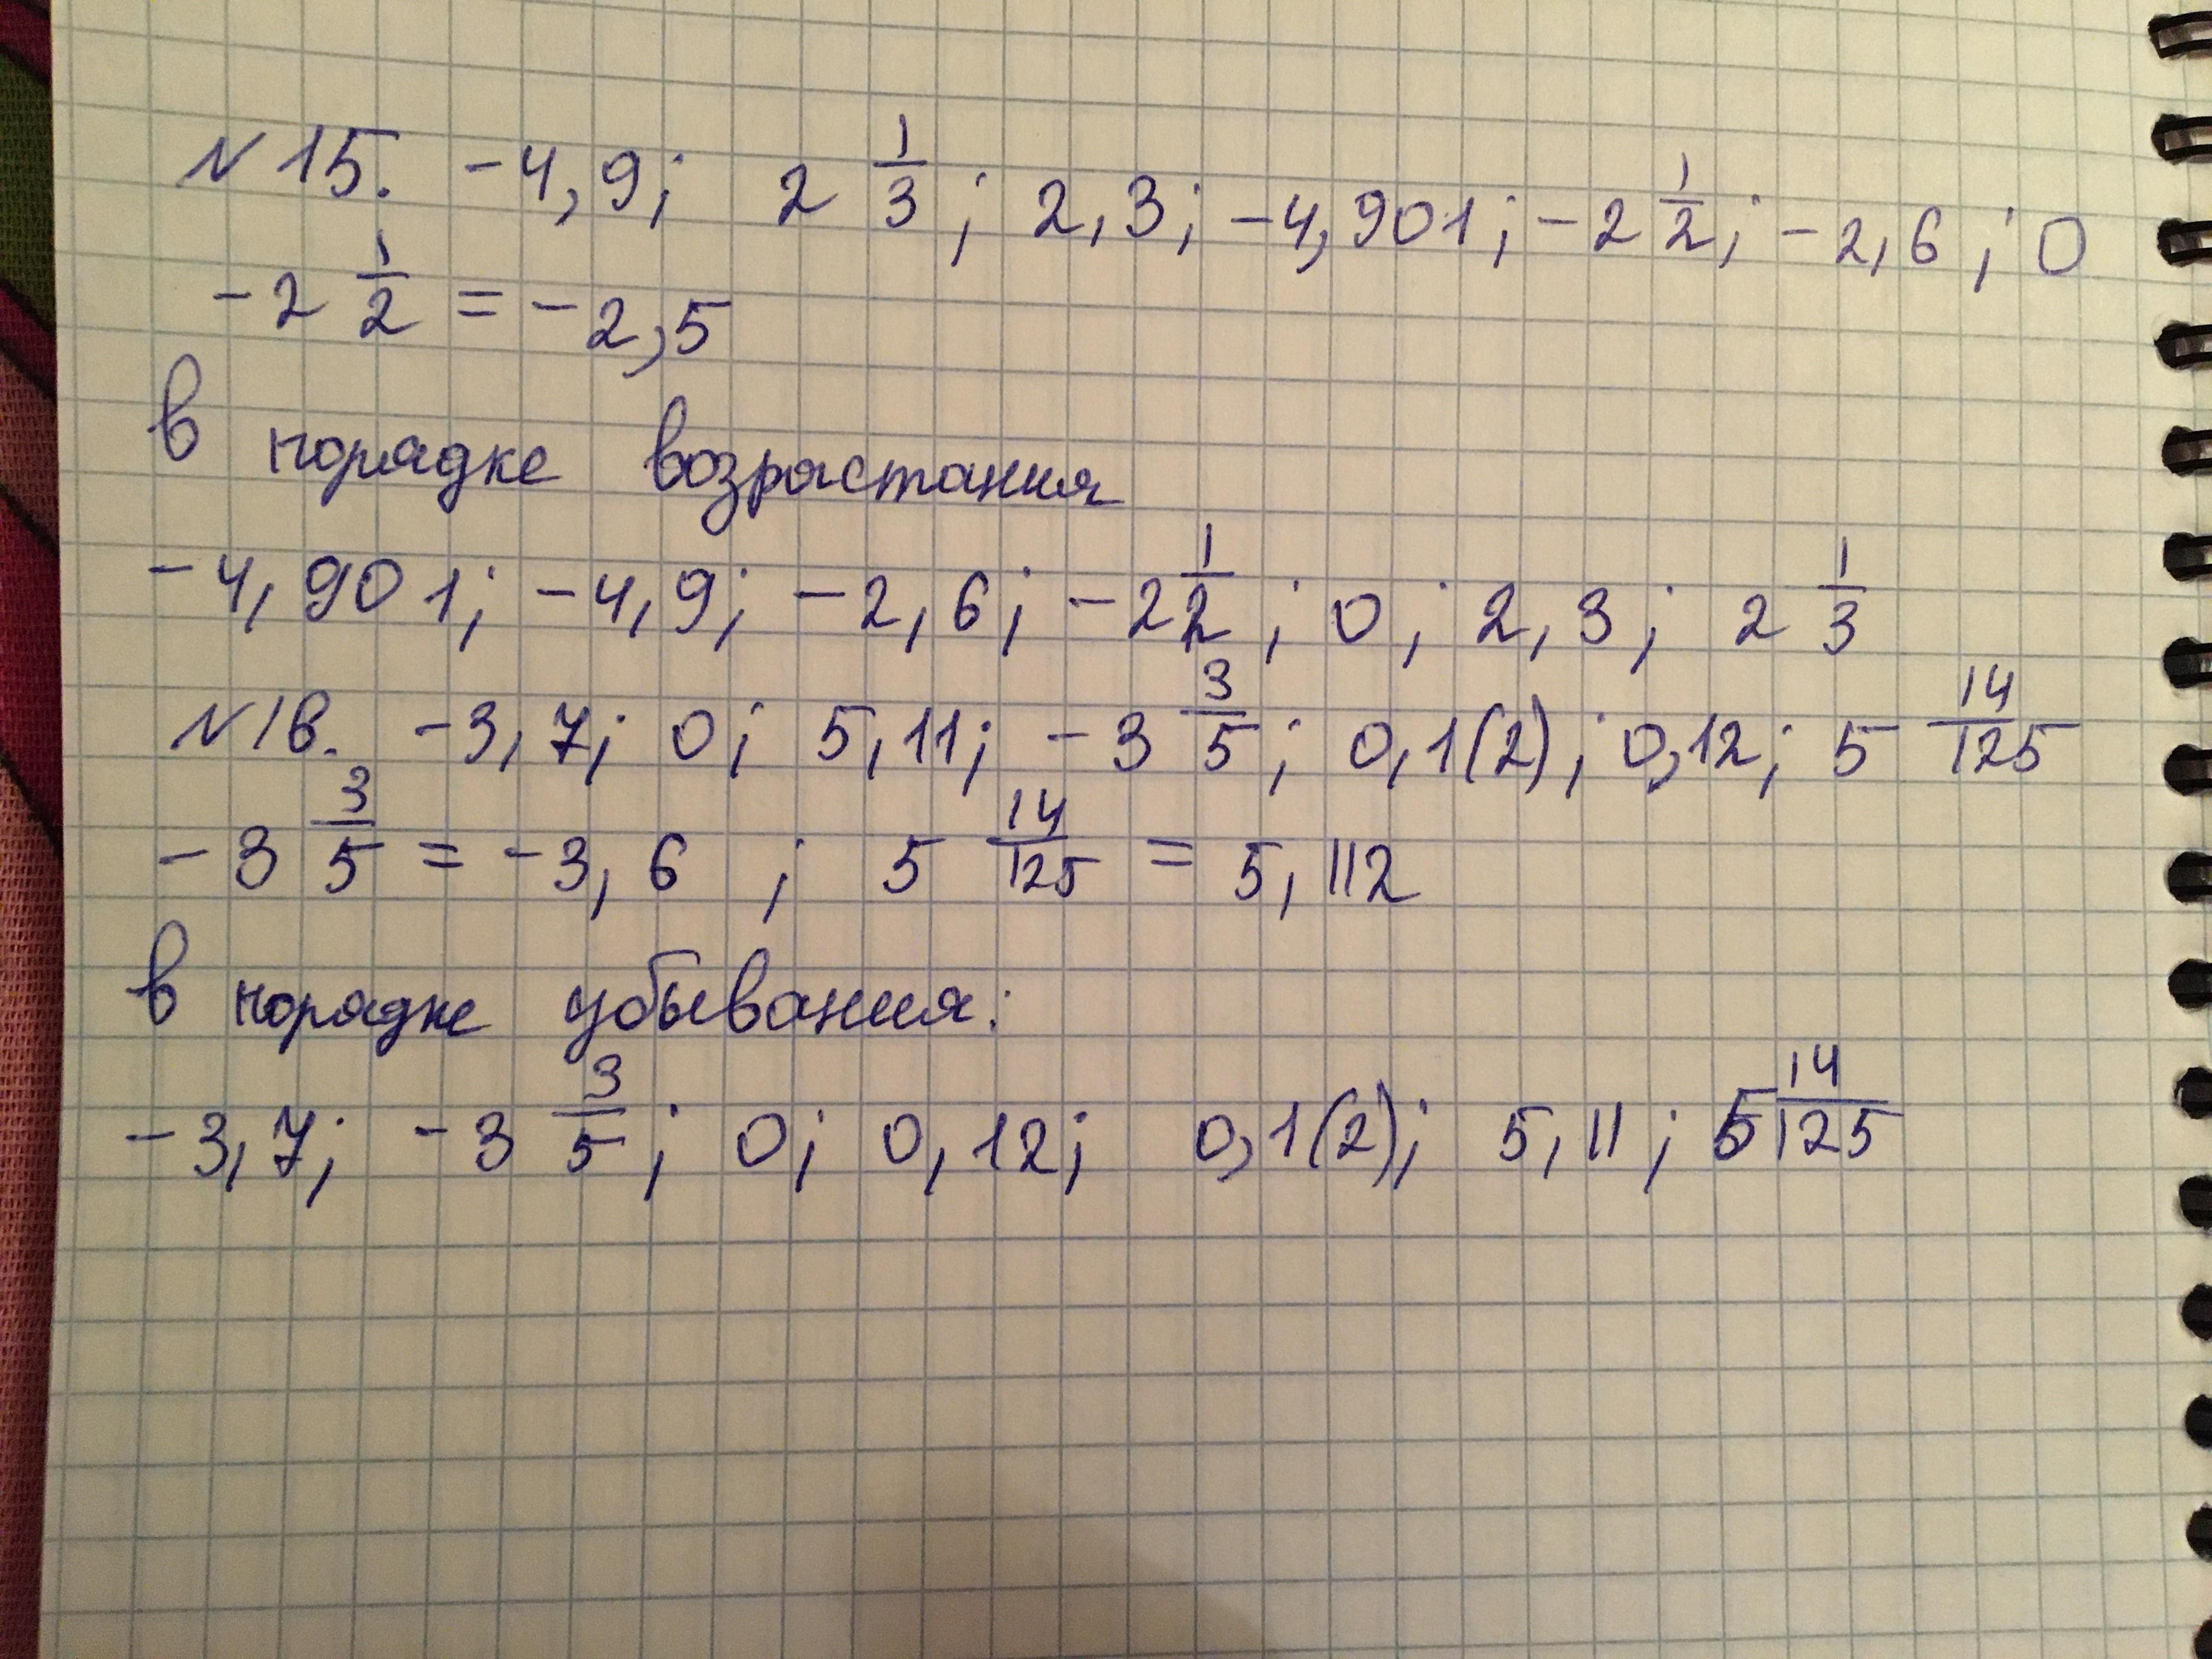 N 15. -4,9; 2 1/3; 2,3; -4,901; -2 1/2; -2,6; 0
-2 1/2 = -2,5
в порядке возрастания
-4,901; -4,9; -2,6; -2 1/2; 0; 2,3; 2 1/3
N 16. -3,7; 0; 5,11; -3 3/5; 0,1(2); 0,12; 5 14/125
-3 3/5 = -3,6 ; 5 14/125 = 5,112
в порядке убывания:
-3,7; -3 3/5; 0; 0,12; 0,1(2); 5,11; 5 14/125